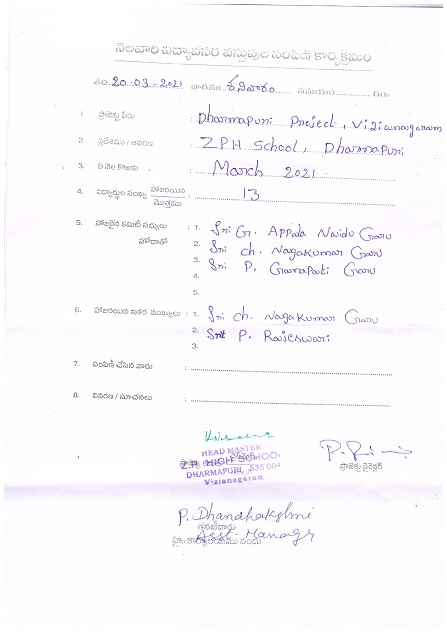 నెలవారి విద్యావసర వస్తువుల పంపిణి కార్యక్రమం
తేది. 20-03-2021 వారము శనివారం సమయం గం.
1. ప్రాజెక్టు పేరు : Dharmapuri Project, Vizianagaram
2. ప్రదేశము / ఆవరణ : ZPH School, Dharmapuri
3. ఏ నెల కొఱకు : March 2021
4. విద్యార్థుల సంఖ్య హాజరయిన / మొత్తము : 13
5. హాజరైన కమిటీ సభ్యులు : 1. Sri Gr. Appala Naidu Garu
హోదాతో 2. Sri ch. Nagakumar Garu
3. Sri P. Ganapati Garu
4.
5.
6. హాజరయిన ఇతర ముఖ్యులు : 1. Sri ch. Nagakumar Garu
2. Smt P. Rajeswari
3.
7. పంపిణీ చేసిన వారు :
8. వివరణ / సూచనలు :
HEAD MASTER
Z.P. HIGH SCHOOL
DHARMAPURI, 535 004
Vizianagaram
ప్రాజెక్టు డైరెక్టర్
P. Dhanalakshmi
Asst-Manager